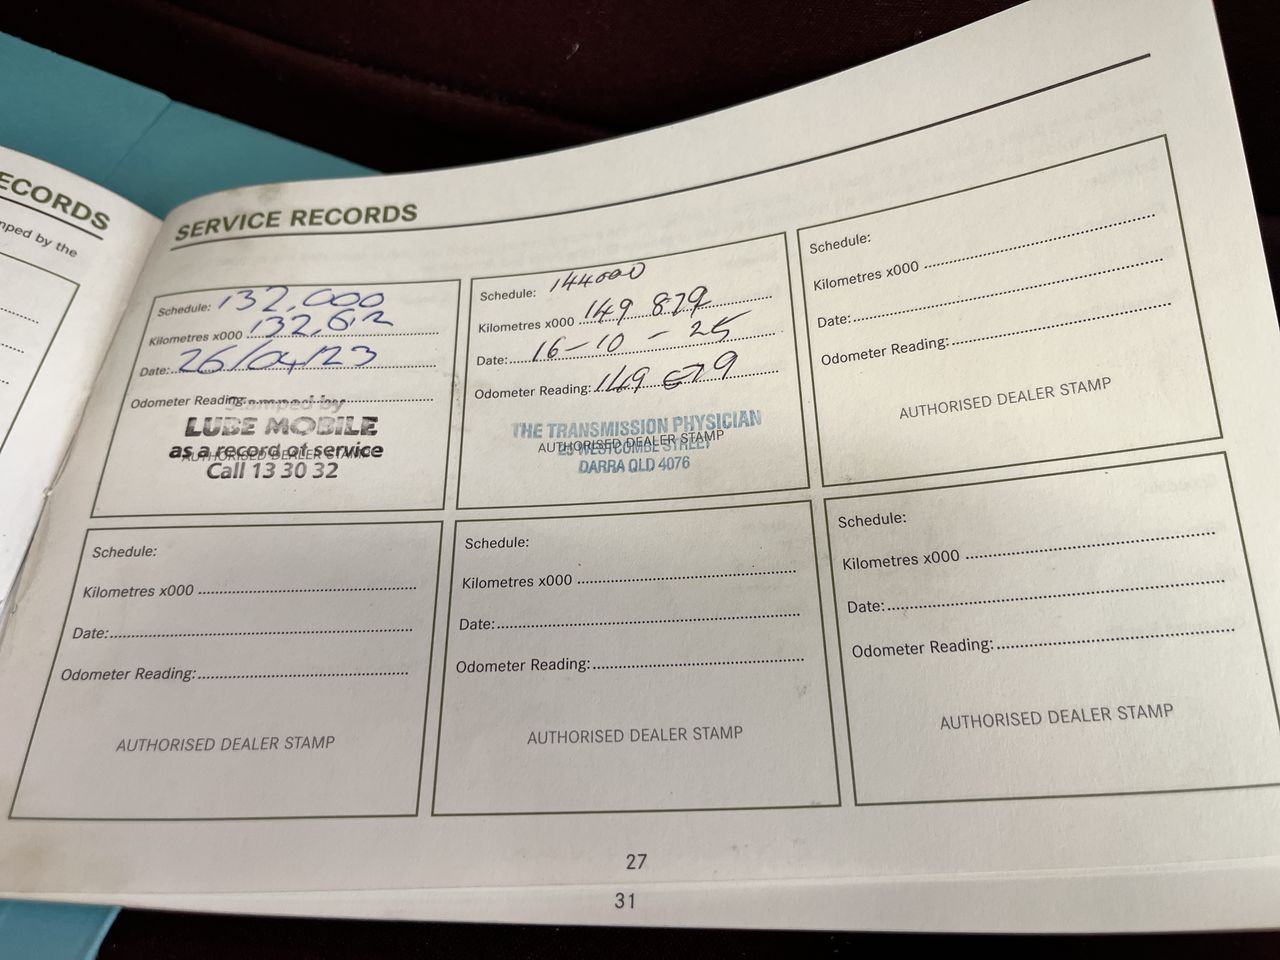 ECORDS
mped by the
SERVICE RECORDS
Schedule: 132,000
Kilometres x000 132,612
Date: 26/04/23
Odometer Reading:
Stamped by
LUBE MOBILE
as a record of service
AUTHORISED DEALER STAMP
Call 13 30 32
Schedule: 144000
Kilometres x000 149 879
Date: 16-10-25
Odometer Reading: 149 879
THE TRANSMISSION PHYSICIAN
AUTHORISED DEALER STAMP
WESTCOMBE STREET
DARRA QLD 4076
Schedule:
Kilometres x000
Date:
Odometer Reading:
AUTHORISED DEALER STAMP
Schedule:
Kilometres x000
Date:
Odometer Reading:
AUTHORISED DEALER STAMP
Schedule:
Kilometres x000
Date:
Odometer Reading:
AUTHORISED DEALER STAMP
Schedule:
Kilometres x000
Date:
Odometer Reading:
AUTHORISED DEALER STAMP
27
31